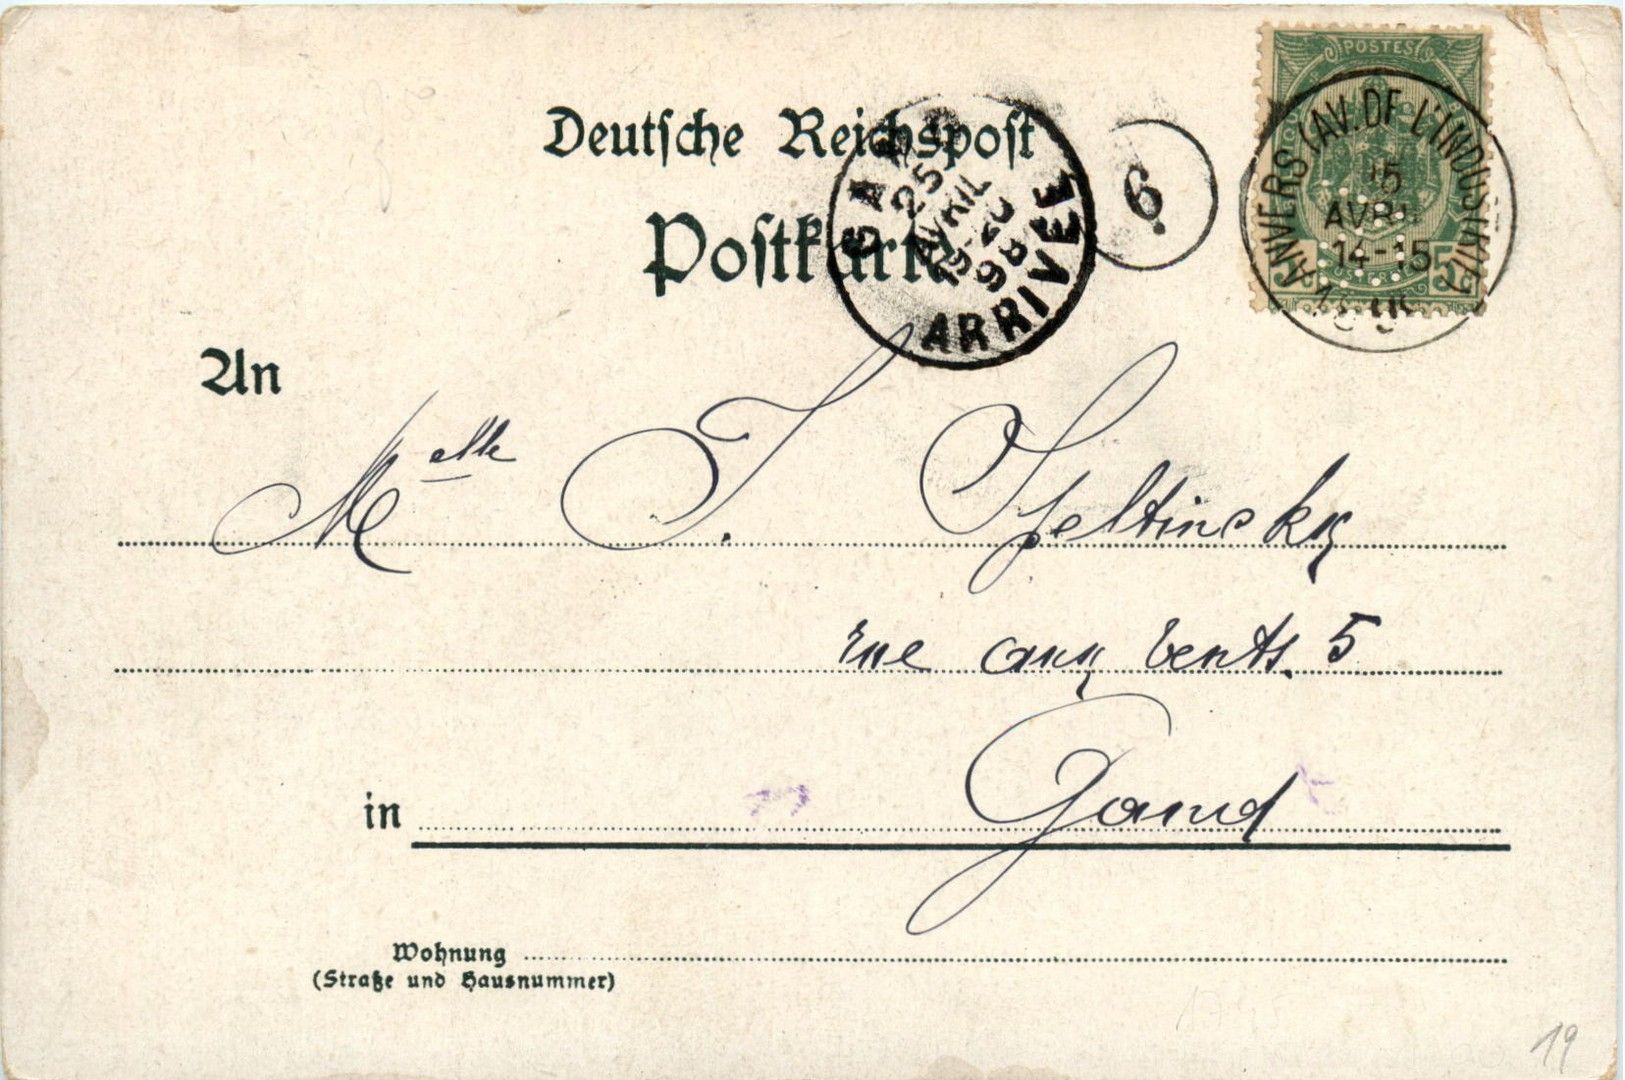 POSTES
5 5
ANVERS (AV. DE L'INDUSTRIE)
AVRIL
14-15
Deutsche Reichspost
Postkarte
GAND
25
AVRIL
19-20
98
ARRIVÉE
6
An
Melle J. Szeltinsky
rue aux vents. 5
in Gand
Wohnung
(Straße und Hausnummer)
19